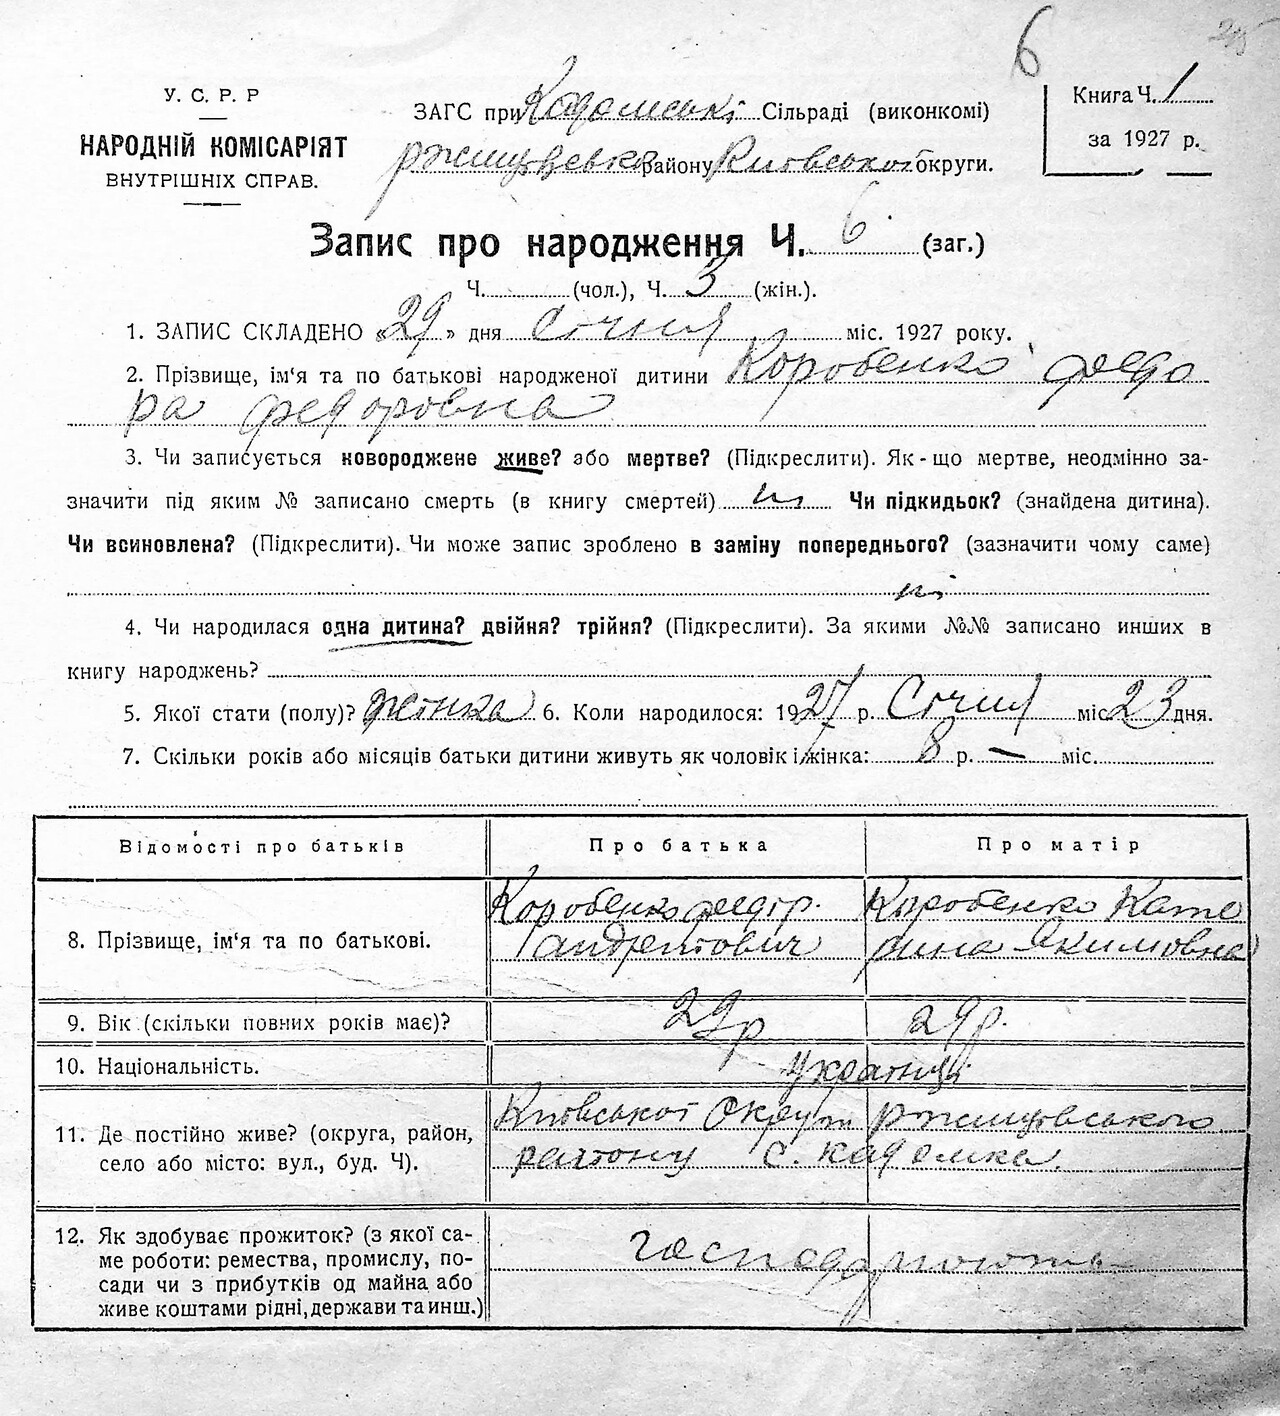 6
У. С. Р. Р
НАРОДНІЙ КОМІСАРІЯТ
ВНУТРІШНІХ СПРАВ.
ЗАГС при Кадомські Сільраді (виконкомі)
ржищівсько району Київської округи.
Книга Ч. 1
за 1927 р.
Запис про народження Ч. 6 (заг.)
Ч. (чол.), Ч. 3 (жін.).
1. ЗАПИС СКЛАДЕНО «29» дня Січня міс. 1927 року.
2. Прізвище, ім'я та по батькові народженої дитини Коробенко Федо
ра Федоровна
3. Чи записується новороджене живе? або мертве? (Підкреслити). Як-що мертве, неодмінно за-
значити під яким № записано смерть (в книгу смертей) ні Чи підкидьок? (знайдена дитина).
Чи всиновлена? (Підкреслити). Чи може запис зроблено в заміну попереднього? (зазначити чому саме)
ні
4. Чи народилася одна дитина? двійня? трійня? (Підкреслити). За якими №№ записано инших в
книгу народжень?
5. Якої стати (полу)? жінка 6. Коли народилося: 1927 р. Січня міс 23 дня.
7. Скільки років або місяців батьки дитини живуть як чоловік і жінка: 8 р. — міс.
Відомості про батьків Про батька Про матір
8. Прізвище, ім'я та по батькові.
Коробенко Федір. Андрійович
Коробенко Кате рина Якимовна
9. Вік (скільки повних років має)? 29р 29р.
10. Національність. українці
11. Де постійно живе? (округа, район,
село або місто: вул., буд. Ч).
Київської Округи ржищівського
району с. Кадомка.
12. Як здобуває прожиток? (з якої са-
ме роботи: ремества, промислу, по-
сади чи з прибутків од майна або
живе коштами рідні, держави та инш.)
господарюють